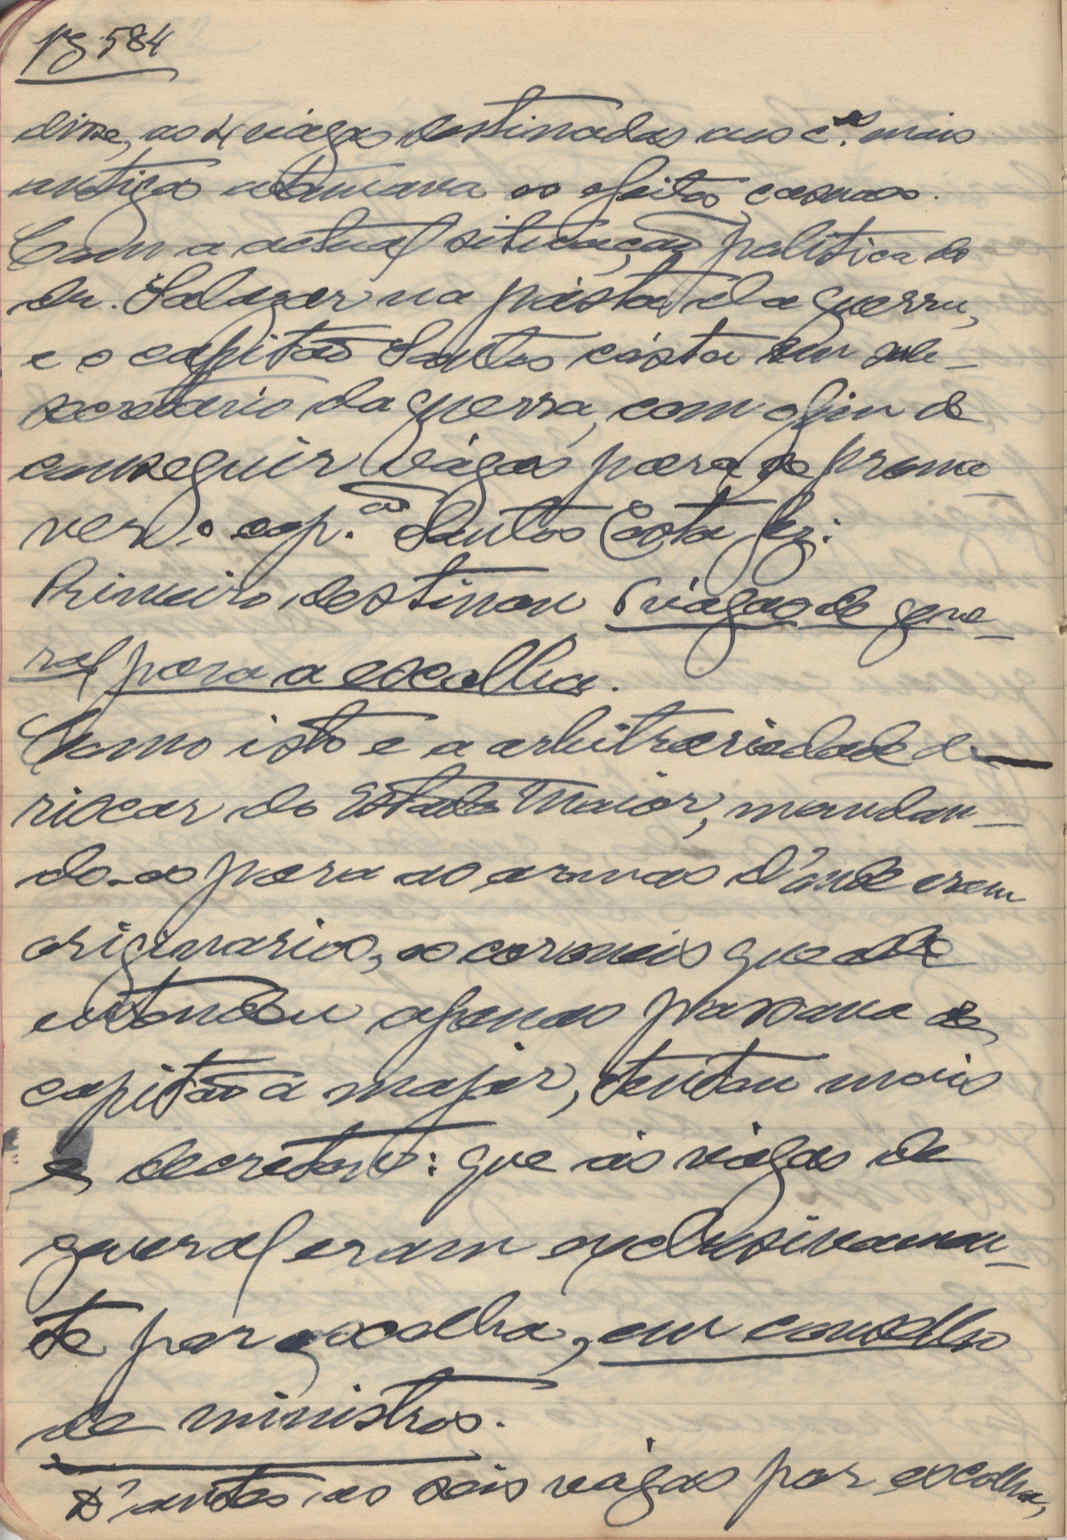 pg 584
disse, as 4 vágas destinadas aos c.eis mais
antigos atenuava os efeitos casuaes.
Com a actual situação politica do
dr. Salazar na pásta da guerra,
e o capitão Santos cósta em sub-
secretário da guerra, com o fim de
conseguir vágas para se promo-
ver o cap.ão Santos Costa fez:
Primeiro destinou 6 vágas de gene-
ral para a escolha.
Como isto e a arbitrariedade de
riscar do Estado Maior, mandan-
do-os para as armas d'onde eram
originarios, os coroneis que ele
entendeu apenas passava de
capitão a major, tentou mais
e decretou: que as vágas de
general eram exclusivamen-
te por escolha, em conselho
de ministros.
D'antes as seis vágas por escolha,